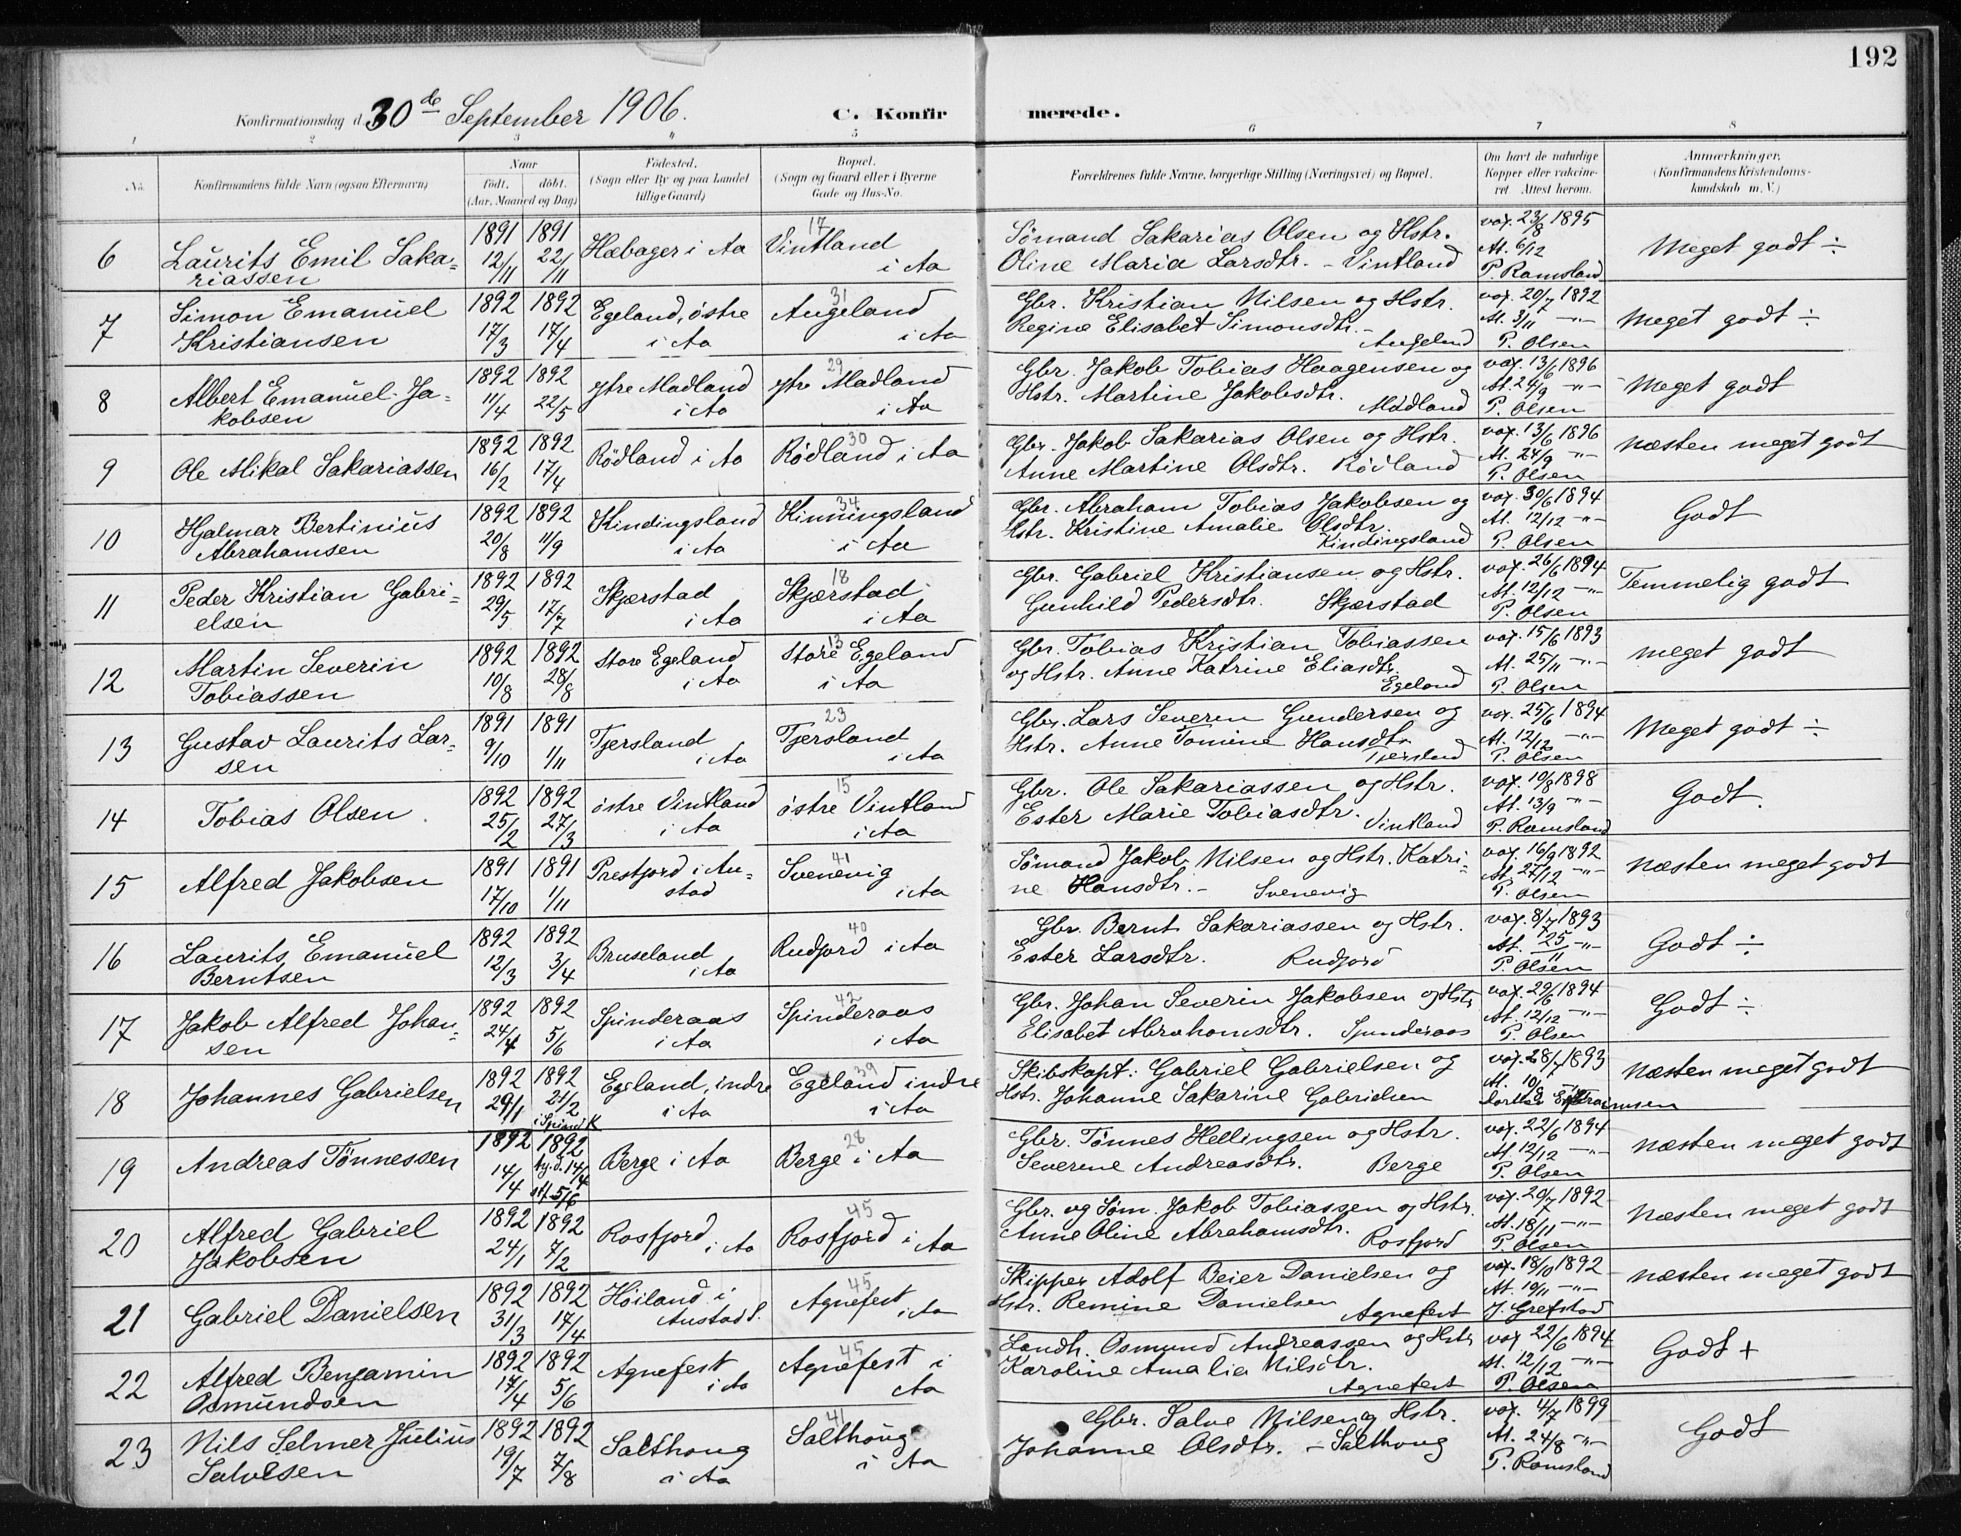 192
Konfirmationsdag d. 30de September 1906. C. Konfirmerede.
1 2 3 4 5 6 7 8
No. Konfirmandens fulde Navn (ogsaa Efternavn) Naar født. døbt. (Aar, Maaned og Dag) Fødested. (Sogn eller By og paa Landet tillige Gaard) Bopæl. (Sogn og Gaard eller i Byerne Gade og Hus-No. Forældrenes fulde Navne, borgerlige Stilling (Næringsvei) og Bopæl. Om havt de naturlige Kopper eller vaccineret. Attest herom. Anmærkninger. (Konfirmandens Kristendomskundskab m. V.)
6 Laurits Emil Sakariassen 1891 12/11 1891 22/11 Hæbager i Aa 17 Vintland i Aa Sømand Sakarias Olsen og Hstr. Oline Maria Larsdtr. - Vintland vax. 23/8 1895 At. 6/12 P. Ramsland Meget godt ÷
7 Simon Emanuel Kristiansen 1892 17/3 1892 17/4 Egeland, østre i Aa 31 Augeland i Aa Gbr. Kristian Nilsen og Hstr. Regine Elisabet Simonsdtr. - Augeland vax. 20/7 1892 At. 3/11 -"- P. Olsen Meget godt ÷
8 Albert Emanuel Jakobsen 1892 11/4 1892 22/5 ytre Madland i Aa 29 ytre Madland i Aa Gbr. Jakob Tobias Haagensen og Hstr. Martine Jakobsdtr. Madland vax. 13/6 1896 At. 24/9 -"- P. Olsen Meget godt
9 Ole Mikal Sakariassen 1892 16/2 1892 17/4 Rødland i Aa 30 Rødland i Aa Gbr. Jakob Sakarias Olsen og Hstr. Anne Martine Olsdtr. Rødland vax. 13/6 1896 At. 24/9 -"- P. Olsen næsten meget godt
10 Hjalmar Bertinius Abrahamsen 1892 20/8 1892 11/9 Kindingsland i Aa 34 Kinningsland i Aa Gbr. Abraham Tobias Jakobsen og Hstr. Kristine Amalie Olsdtr. Kindingsland vax. 30/6 1894 At. 12/12 -"- P. Olsen Godt
11 Peder Kristian Gabrielsen 1892 29/5 1892 17/7 Skjærstad i Aa 18 Skjærstad i Aa Gbr. Gabriel Kristiansen og Hstr. Gunhild Pedersdtr. Skjærstad vax. 26/6 1894 At. 12/12 -"- P. Olsen Temmelig godt
12 Martin Severin Tobiassen 1892 10/8 1892 28/8 Store Egeland i Aa 13 Store Egeland i Aa Gbr. Tobias Kristian Tobiassen og Hstr. Anne Katrine Eliasdtr. Egeland vax. 15/6 1893 At. 25/11 -"- P. Olsen meget godt
13 Gustav Laurits Larsen 1891 9/10 1891 1/11 Tjersland i Aa 23 Tjersland i Aa Gbr. Lars Severin Gundersen og Hstr. Anne Tomine Hansdtr. Tjersland vax. 25/6 1894 At. 12/12 -"- P. Olsen Meget godt ÷
14 Tobias Olsen. 1892 25/2 1892 27/3 østre Vintland i Aa 15 østre Vintland i Aa Gbr. Ole Sakariassen og Hstr. Ester Marie Tobiasdtr. Vintland vax. 10/8 1898 At. 13/9 -"- P. Ramsland Godt.
15 Alfred Jakobsen 1891 17/10 1891 1/11 Prestfjord i Austad 41 Svenevig i Aa Sømand Jakob Nilsen og Hstr. Katrine Hansdtr. - Svenevig vax. 16/9 1892 At. 27/12 -"- P. Olsen Næsten meget godt
16 Laurits Emanuel Berntsen 1892 12/3 1892 3/4 Bruseland i Aa 40 Rudjord i Aa Gbr. Bernt Sakariassen og Hstr. Ester Larsdtr. Rudjord vax. 8/7 1893 At. 25/11 -"- P. Olsen Godt ÷
17 Jakob Alfred Johansen 1892 24/4 1892 5/6 Spinderaas i Aa 42 Spinderaas i Aa Gbr. Johan Severin Jakobsen og Hstr. Elisabet Abrahamsdtr. Spinderaas vax. 29/6 1894 At. 12/12 -"- P. Olsen Godt ÷
18 Johannes Gabrielsen 1892 29/1 1892 21/2 i Spind K Egeland, indre i Aa 39 Egeland indre i Aa Skibskapt: Gabriel Gabrielsen og Hstr. Johanne Sakarine Gabrielsen vax. 28/7 1893 At. 10/9 -"- næsten meget godt
19 Andreas Tønnessen 1892 14/4 1892 hj.d. 14/4 st. 5/6 Berge i Aa 28 Berge i Aa Gbr. Tønnes Hellingsen og Hstr. Severine Andreasdtr. Berge vax. 22/6 1894 At. 12/12 -"- P. Olsen næsten meget godt
20 Alfred Gabriel Jakobsen 1892 24/1 1892 7/2 Rosfjord i Aa 45 Rosfjord i Aa Gbr. og Søm. Jakob Tobiassen og Hstr. Anne Oline Abrahamsdtr. Rosfjord vax. 20/7 1892 At. 18/11 -"- P. Olsen Næsten meget godt
21 Gabriel Danielsen 1892 31/3 1892 17/4 Høiland i Austad S. 45 Agnefest i Aa Skipper Adolf Beier Danielsen og Hstr. Remine Danielsen Agnefest vax. 18/10 1892 At. 19/11 -"- J. Grefstad næsten meget godt
22 Alfred Benjamin Osmundsen 1892 17/4 1892 5/6 Agnefest i Aa 45 Agnefest i Aa Landh. Osmund Andreassen og Hstr. Karoline Amalia Nilsdtr. Agnefest vax 22/6 1894 At. 12/12 -"- P. Olsen Godt +
23 Nils Selmer Julius Salvesen 1892 19/7 1892 7/8 Salthoug i Aa 41 Salthoug i Aa Gbr. Salve Nilsen og Hstr. Johanne Olsdtr. - Salthoug vax. 4/7 1899 At. 24/8 -"- P. Ramsland Godt